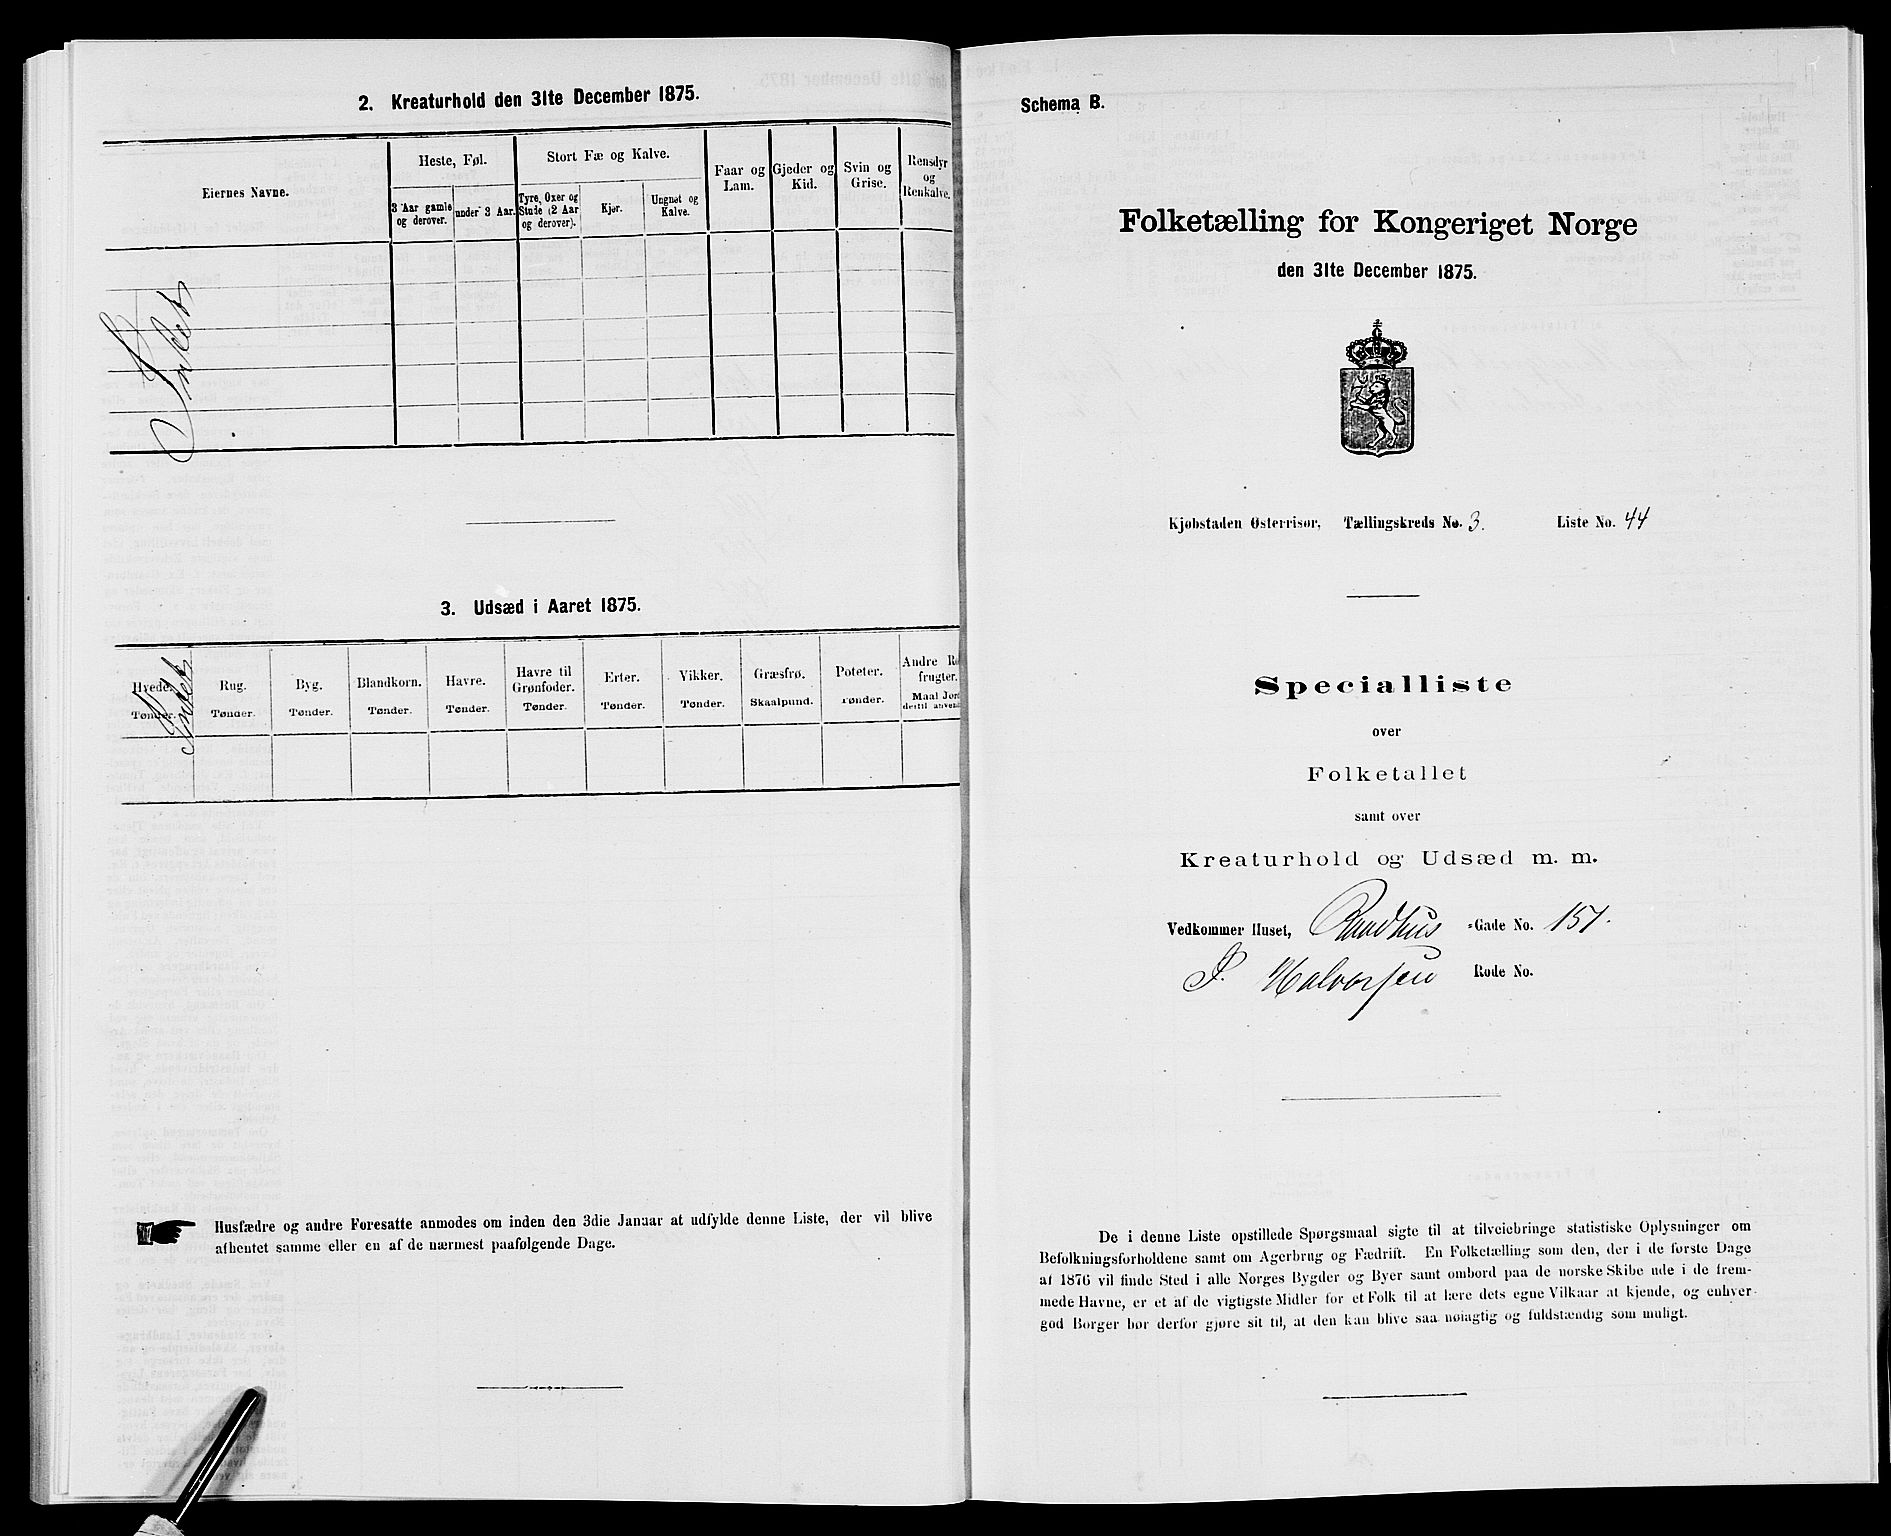 2. Kreaturhold den 31te December 1875.
Eiernes Navne.
Heste, Føl.
3 Aar gamle og derover.
under 3 Aar.
Stort Fæ og Kalve.
Tyre, Oxer og Stude (2 Aar og derover).
Kjør.
Ungnøt og Kalve.
Faar og Lam.
Gjeder og Kid.
Svin og Grise.
Rensdyr og Renkalve.
Intet
3. Udsæd i Aaret 1875.
Hvede.
Tønder.
Rug.
Tønder.
Byg.
Tønder.
Blandkorn.
Tønder.
Havre.
Tønder.
Havre til Grønfoder.
Tønder.
Erter.
Tønder.
Vikker.
Tønder.
Græsfrø.
Skaalpund.
Poteter.
Tønder.
Andre Ro
frugter.
Maal Jord
dertil anvend
Intet
Husfædre og andre Foresatte anmodes om inden den 3die Januar at udfylde denne Liste, der vil blive
afhentet samme eller en af de nærmest paafølgende Dage.
Schema B.
Folketælling for Kongeriget Norge
den 31te December 1875.
Kjøbstaden Østerrisør, Tællingskreds No. 3. Liste No. 44
Specialliste
over
Folketallet
samt over
Kreaturhold og Udsæd m. m.
Vedkommer Huset, Raadhus -Gade No. 151.
Halvorsen Rode No.
De i denne Liste opstillede Spørgsmaal sigte til at tilveiebringe statistiske Oplysninger om
Befolkningsforholdene samt om Agerbrug og Fædrift. En Folketælling som den, der i de første Dage
af 1876 vil finde Sted i alle Norges Bygder og Byer samt ombord paa de norske Skibe ude i de frem-
mede Havne, er et af de vigtigste Midler for et Folk til at lære dets egne Vilkaar at kjende, og enhver
god Borger bør derfor gjøre sit til, at den kan blive saa nøiagtig og fuldstændig som muligt.